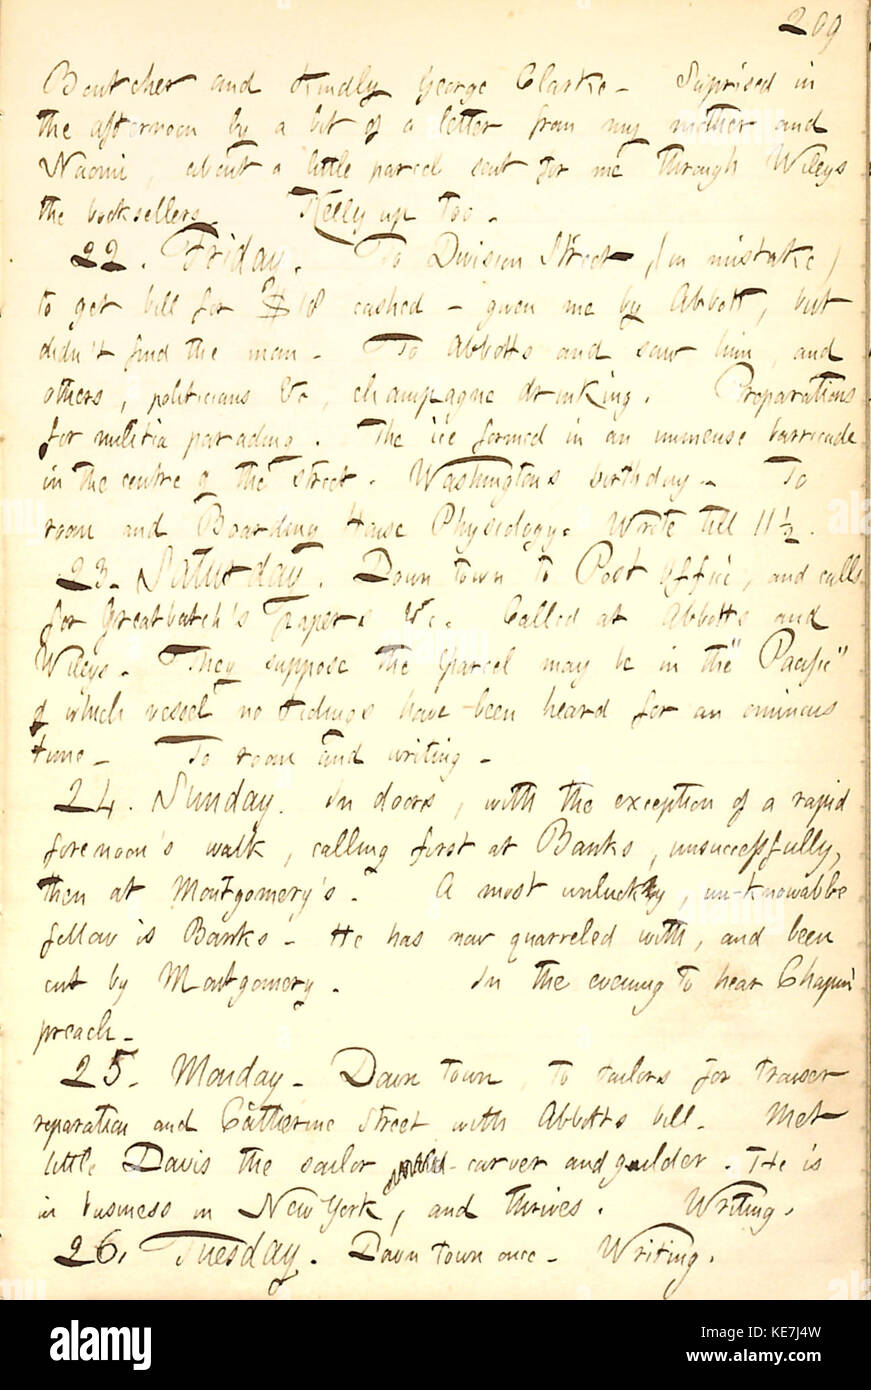 209
Boutcher and kindly George Clarke - Suprised in
the afternoon by a bit of a letter from my mother and
Naomi, about a little parcel sent for me through Wileys
the booksellers. Kelly up too -
22. Friday. To Division Street, (in mistake)
to get bill for $18 cashed - given me by Abbott, but
didn't find the man - To Abbotts and saw him, and
others, politicians &c, champagne drinking. Preparations
for militia parading. The ice formed in an immense barricade
in the centre of the street. Washington's birthday - To
room and Boarding House Physiology. Wrote till 11 ½.
23. Saturday. Down town to Post Office, and calls
for Greatbatch's Papers &c. Called at Abbotts and
Wileys - They suppose the parcel may be in the "Pacific"
of which vessel no tidings have been heard for an ominous
time - To room and writing -
24. Sunday. In doors, with the exception of a rapid
forenoon's walk, calling first at Banks, unsuccessfully,
then at Montgomery's. A most unlucky, un-knowable
fellow is Banks - He has now quarreled with, and been
cut by Montgomery. In the evening to hear Chapin
preach -
25. Monday - Down town, to tailors for trouser
reparation and Catherine Street with Abbotts bill. Met
little Davis the sailor carver and guilder. He is
in business in New York, and thrives. Writing.
26. Tuesday. Down town once - Writing.
alamy
Image ID: KE7J4W
www.alamy.com